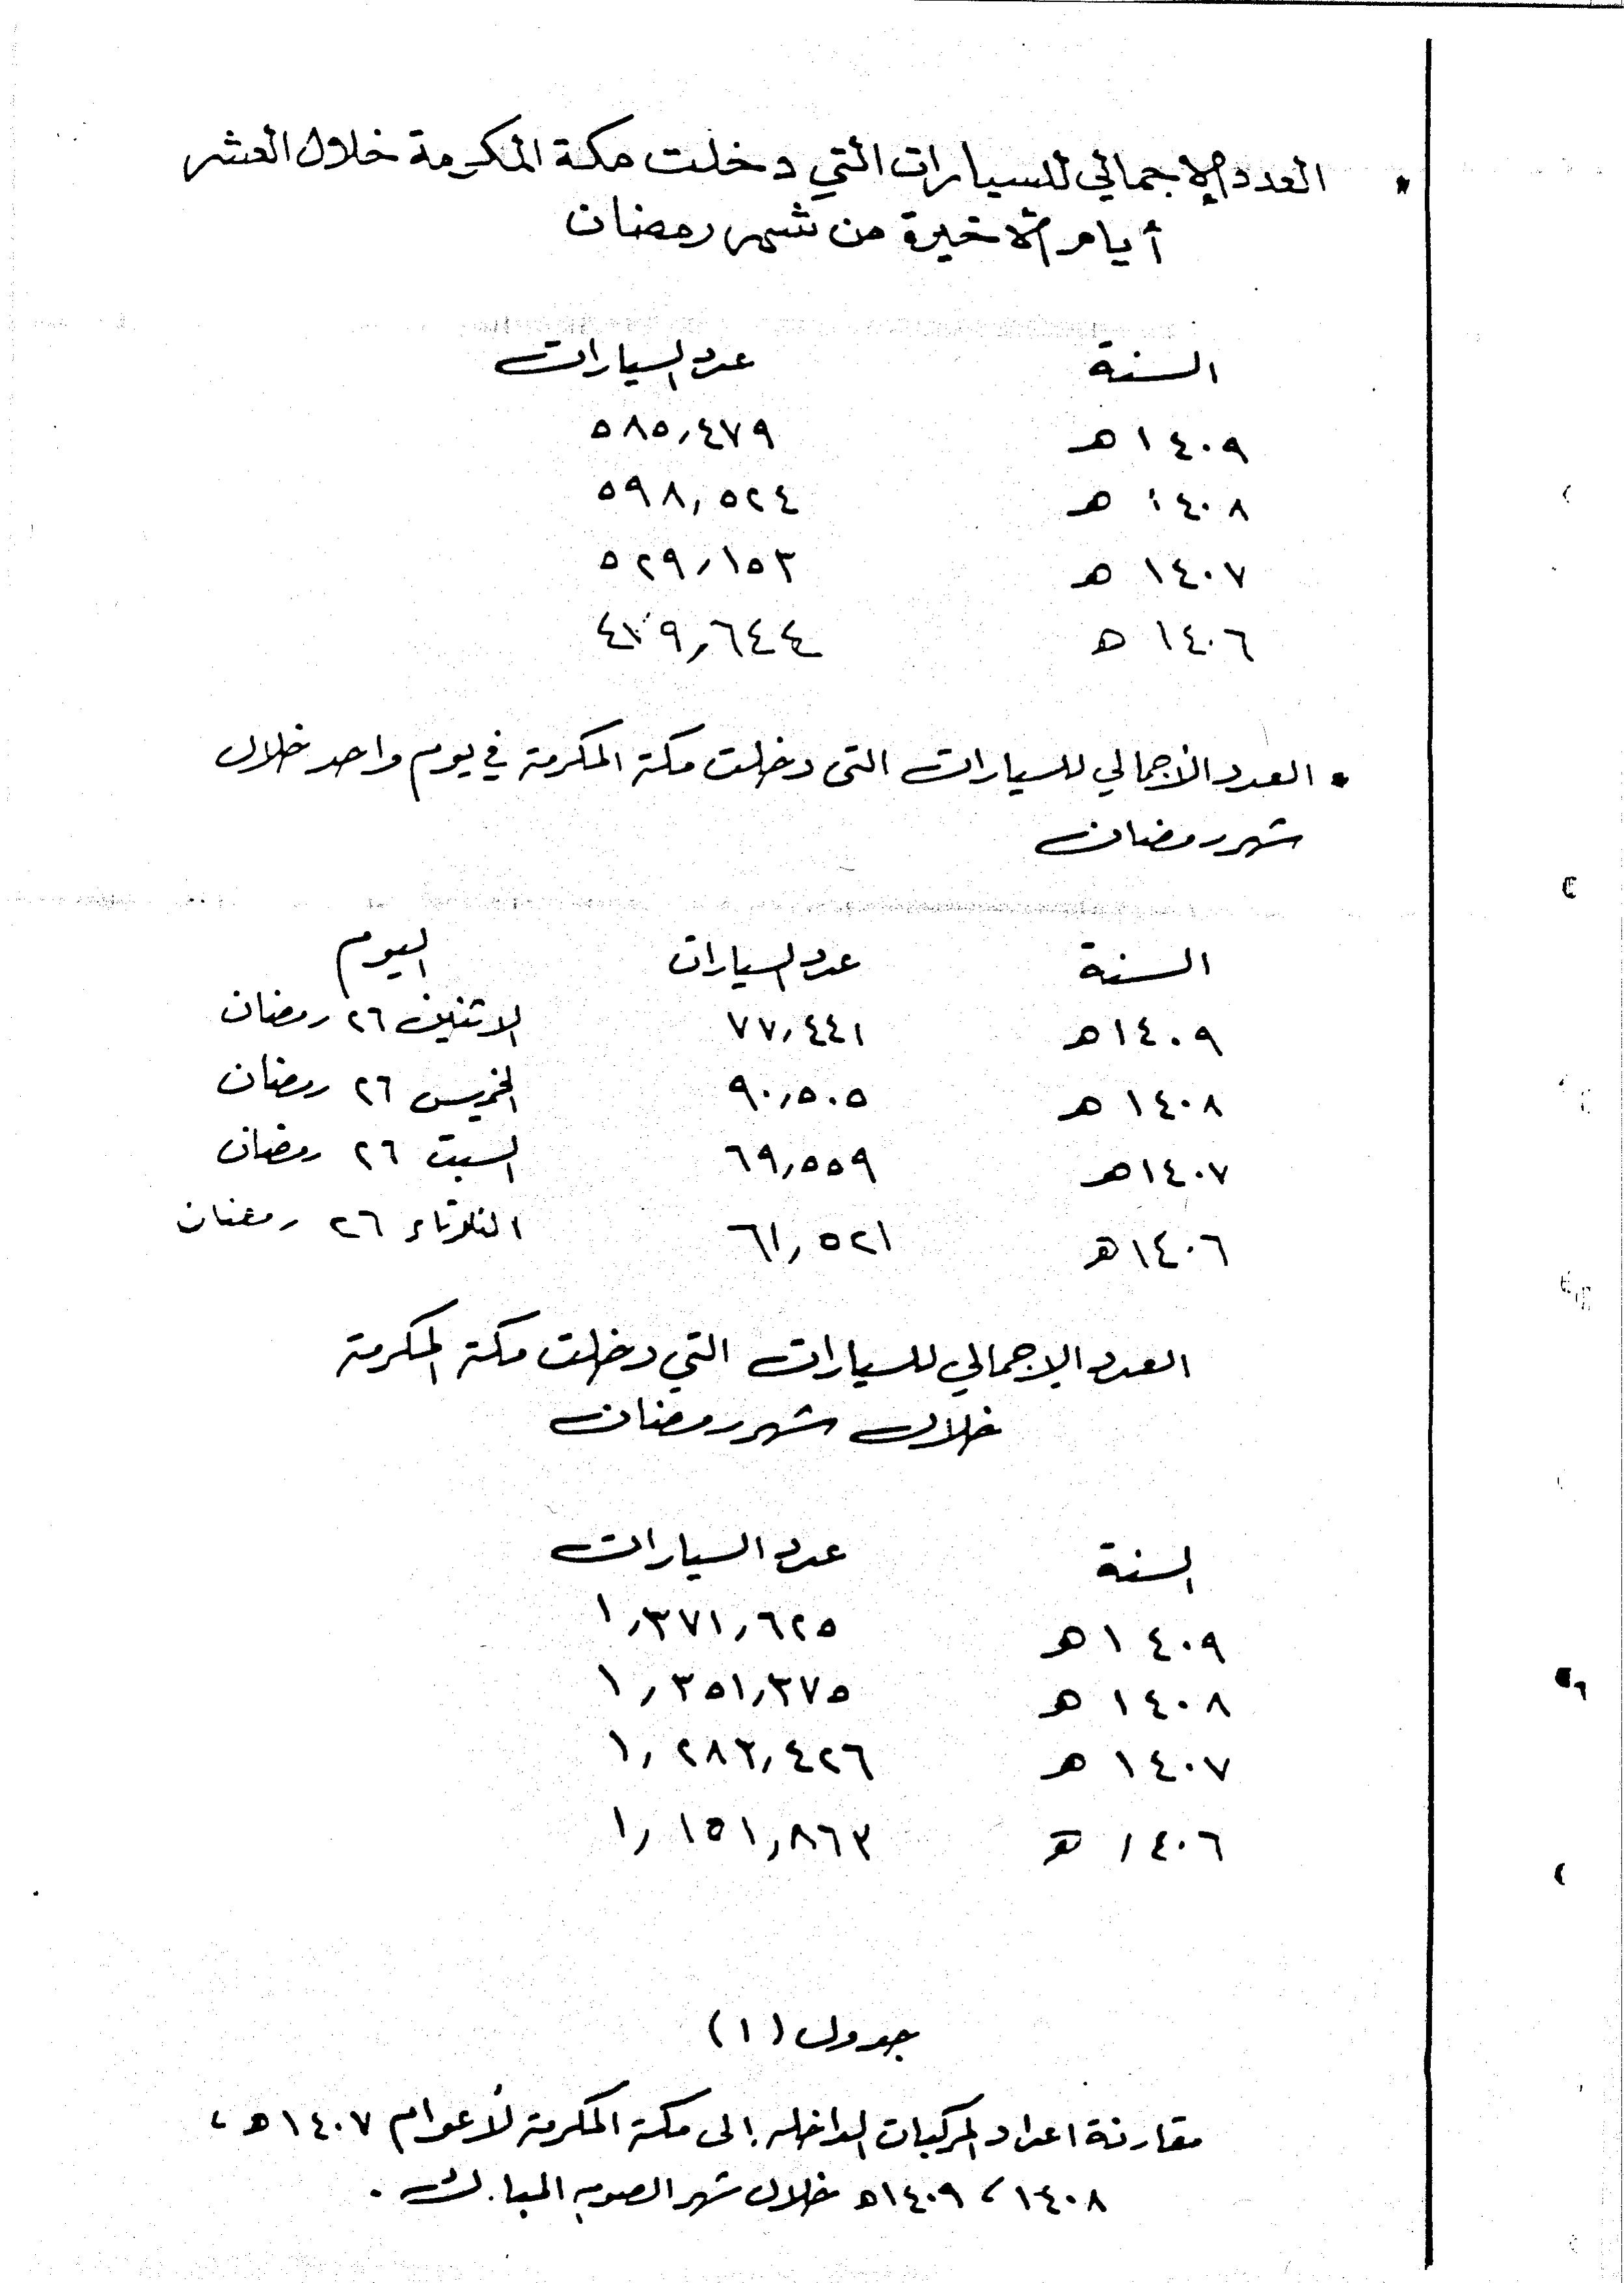 * العدد الإجمالي للسيارات التي دخلت مكة المكرمة خلال العشر
أيام الأخيرة من شهر رمضان
السنة عدد السيارات
١٤٠٩ هـ ٥٨٥,٤٧٩
١٤٠٨ هـ ٥٩٨,٥٢٤
١٤٠٧ هـ ٥٢٩,١٥٣
١٤٠٦ هـ ٤٧٩,٦٤٤
* العدد الأجمالي للسيارات التى دخلت مكة المكرمة في يوم واحد خلال
شهر رمضان
السنة عدد السيارات اليوم
١٤٠٩ هـ ٧٧,٤٤١ الاثنين ٢٦ رمضان
١٤٠٨ هـ ٩٠,٥٠٥ الخميس ٢٦ رمضان
١٤٠٧ هـ ٦٩,٥٥٩ السبت ٢٦ رمضان
١٤٠٦ هـ ٦١,٥٢١ الثلاثاء ٢٦ رمضان
العدد الإجمالي للسيارات التي دخلت مكة المكرمة
خلال شهر رمضان
السنة عدد السيارات
١٤٠٩ هـ ١,٣٧١,٦٢٥
١٤٠٨ هـ ١,٣٥١,٣٧٥
١٤٠٧ هـ ١,٢٨٣,٤٢٦
١٤٠٦ هـ ١,١٥١,٨٦٣
جدول (١)
مقارنة اعداد المركبات الداخله إلى مكة المكرمة لأعوام ١٤٠٧ هـ ،
١٤٠٨ ، ١٤٠٩ هـ خلال شهر الصوم المبارك .